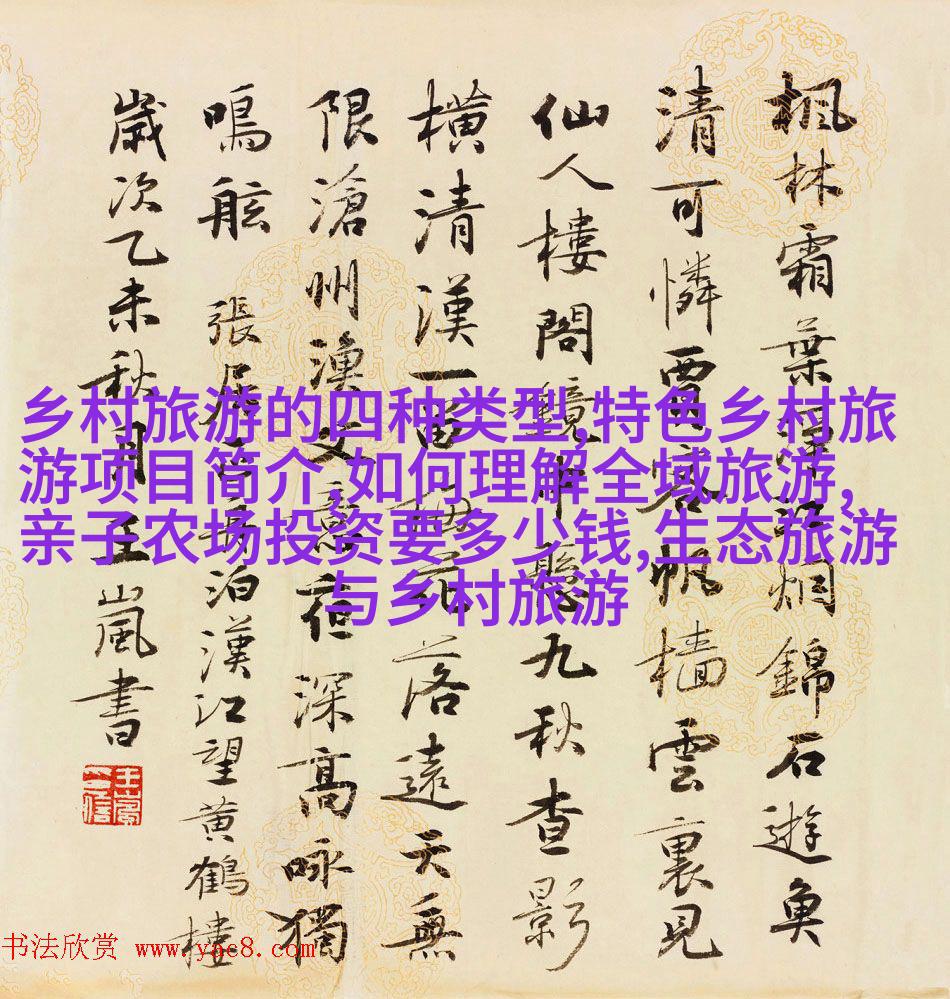 乡村旅游的四种类型,特色乡村旅
游项目简介,如何理解全域旅游,
亲子农场投资要多少钱,生态旅游
与乡村旅游
楓林霜葉江烟錦石遊魚
清可憐賈客帆檣雲裏見
仙人樓閣鏡懸九秋查影
橫清漢一笛梅花落遠天無
限滄州漁父意夜深高咏獨
鳴舷 張居正泊漢江望黄鶴樓
歲次乙未秋月王嵐書
书法欣赏 www.yac8.com